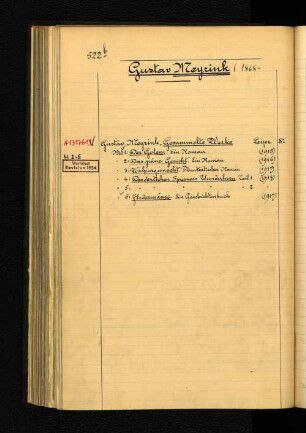 522 b
Gustav Meyrink (1868-
Gustav Meyrink, Gesammelte Werke Leipz. 8º
Bd. 1: Der Golem. Ein Roman (1915)
" 2: Das grüne Gesicht. Ein Roman (1916)
" 3: Walpurgisnacht. Phantastischer Roman (1917)
" 4: Des deutschen Spiessers Wunderhorn. Teil 1 (1913)
" 5:
" 6: Fledermäuse. Ein Geschichtenbuch (1917)
Vermisst
Revision 1954